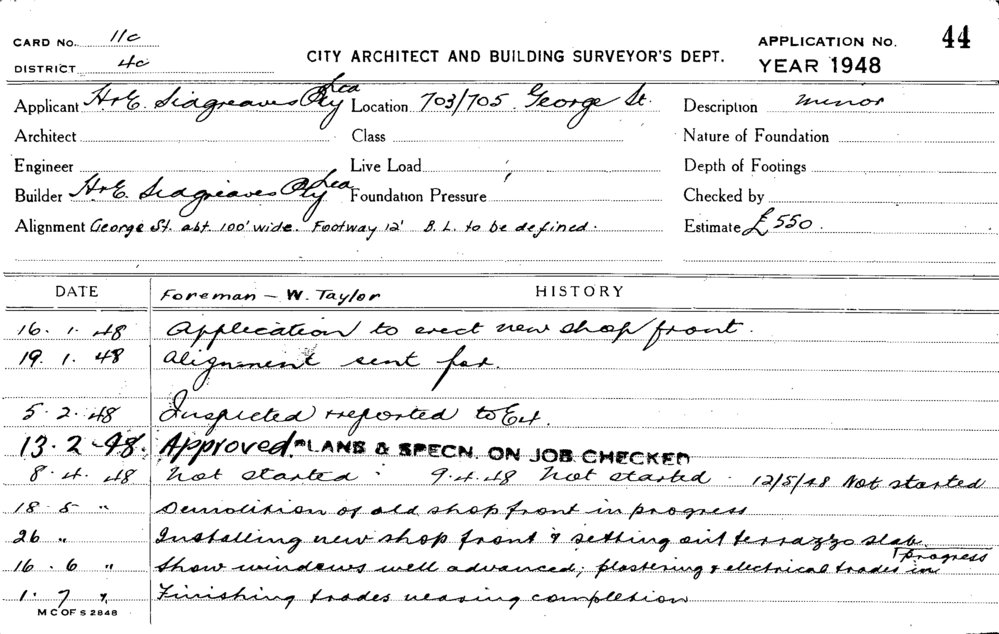 CARD No. 11c
CITY ARCHITECT AND BUILDING SURVEYOR'S DEPT.
APPLICATION No. 44
DISTRICT 4c
YEAR 1948
Applicant H & E. Seagreaves Pty Ltd Location 703/705 George St. Description minor
Architect Class Nature of Foundation
Engineer Live Load Depth of Footings
Builder H & E. Seagreaves Pty Ltd Foundation Pressure Checked by
Alignment George St. abt. 100' wide. Footway 12' B. L. to be defined. Estimate £550.
DATE Foreman - W. Taylor HISTORY
16. 1. 48 Application to erect new shop front.
19. 1. 48 Alignment sent for.
5. 2. 48 Inspected & reported to
13. 2. 48. Approved. PLANS & SPECN. ON JOB CHECKED
8. 4. 48 Not started. 9. 4. 48 Not started. 12/5/48 Not started
18 5 " Demolition of old shop front in progress
26 " Installing new shop front & setting out terrazzo slab.
16. 6 " Show windows well advanced; plastering & electrical trades in progress
1. 7 " Finishing trades nearing completion
M C OF S 2848